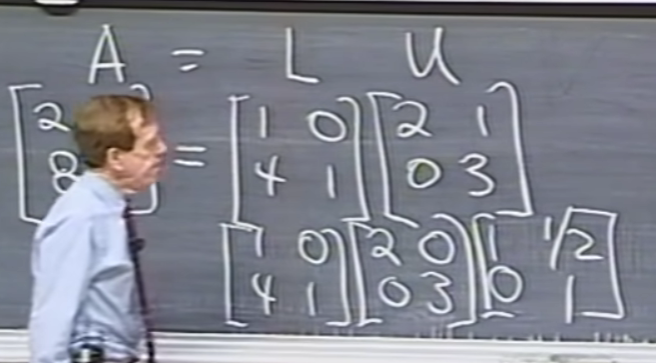 A = L U
[2
8] = [1 0
4 1] [2 1
0 3]
[1 0
4 1] [2 0
0 3] [1 1/2
0 1]